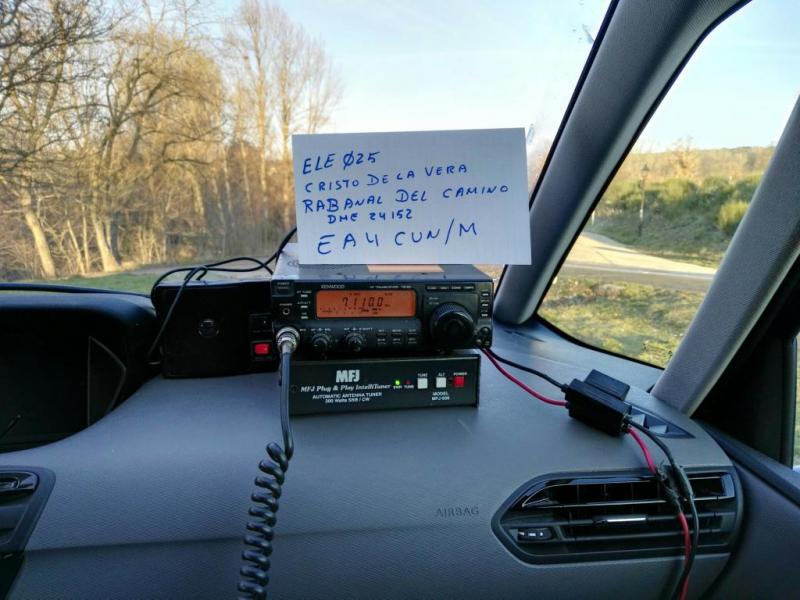 ELE Ø25
CRISTO DE LA VERA
RABANAL DEL CAMINO
DME 24152
EA4 CUN/M
KENWOOD
7.110.0
MFJ
MFJ Plug & Play IntelliTuner
AUTOMATIC ANTENNA TUNER
200 Watts SSB / CW
TUNE
ANT
POWER
MODEL
MFJ-939
AIRBAG